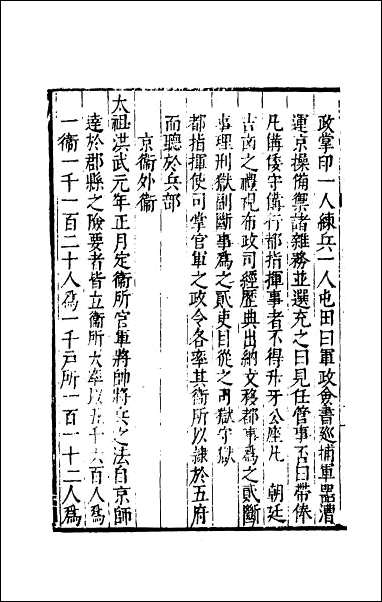 政掌印一人練兵一人屯田曰軍政僉書廵捕軍噐漕
運京操備禦諸雜務並選充之曰見任管事否曰帶俸
凡備倭守備行都指揮事者不得升牙公座凡　朝廷
吉凶之禮視布政司經歷典出納文移都事爲之貳斷
事理刑獄副斷事爲之貳吏目從之司獄守獄
都指揮使司掌官軍之政令各率其衛所以隷於五府
而聽於兵部
京衛外衛
太祖洪武元年正月定衛所官軍將帥將兵之法自京師
達於郡縣之險要者皆立衛所大率以五千六百人爲
一衛一千一百二十人爲一千戸所一百一十二人爲